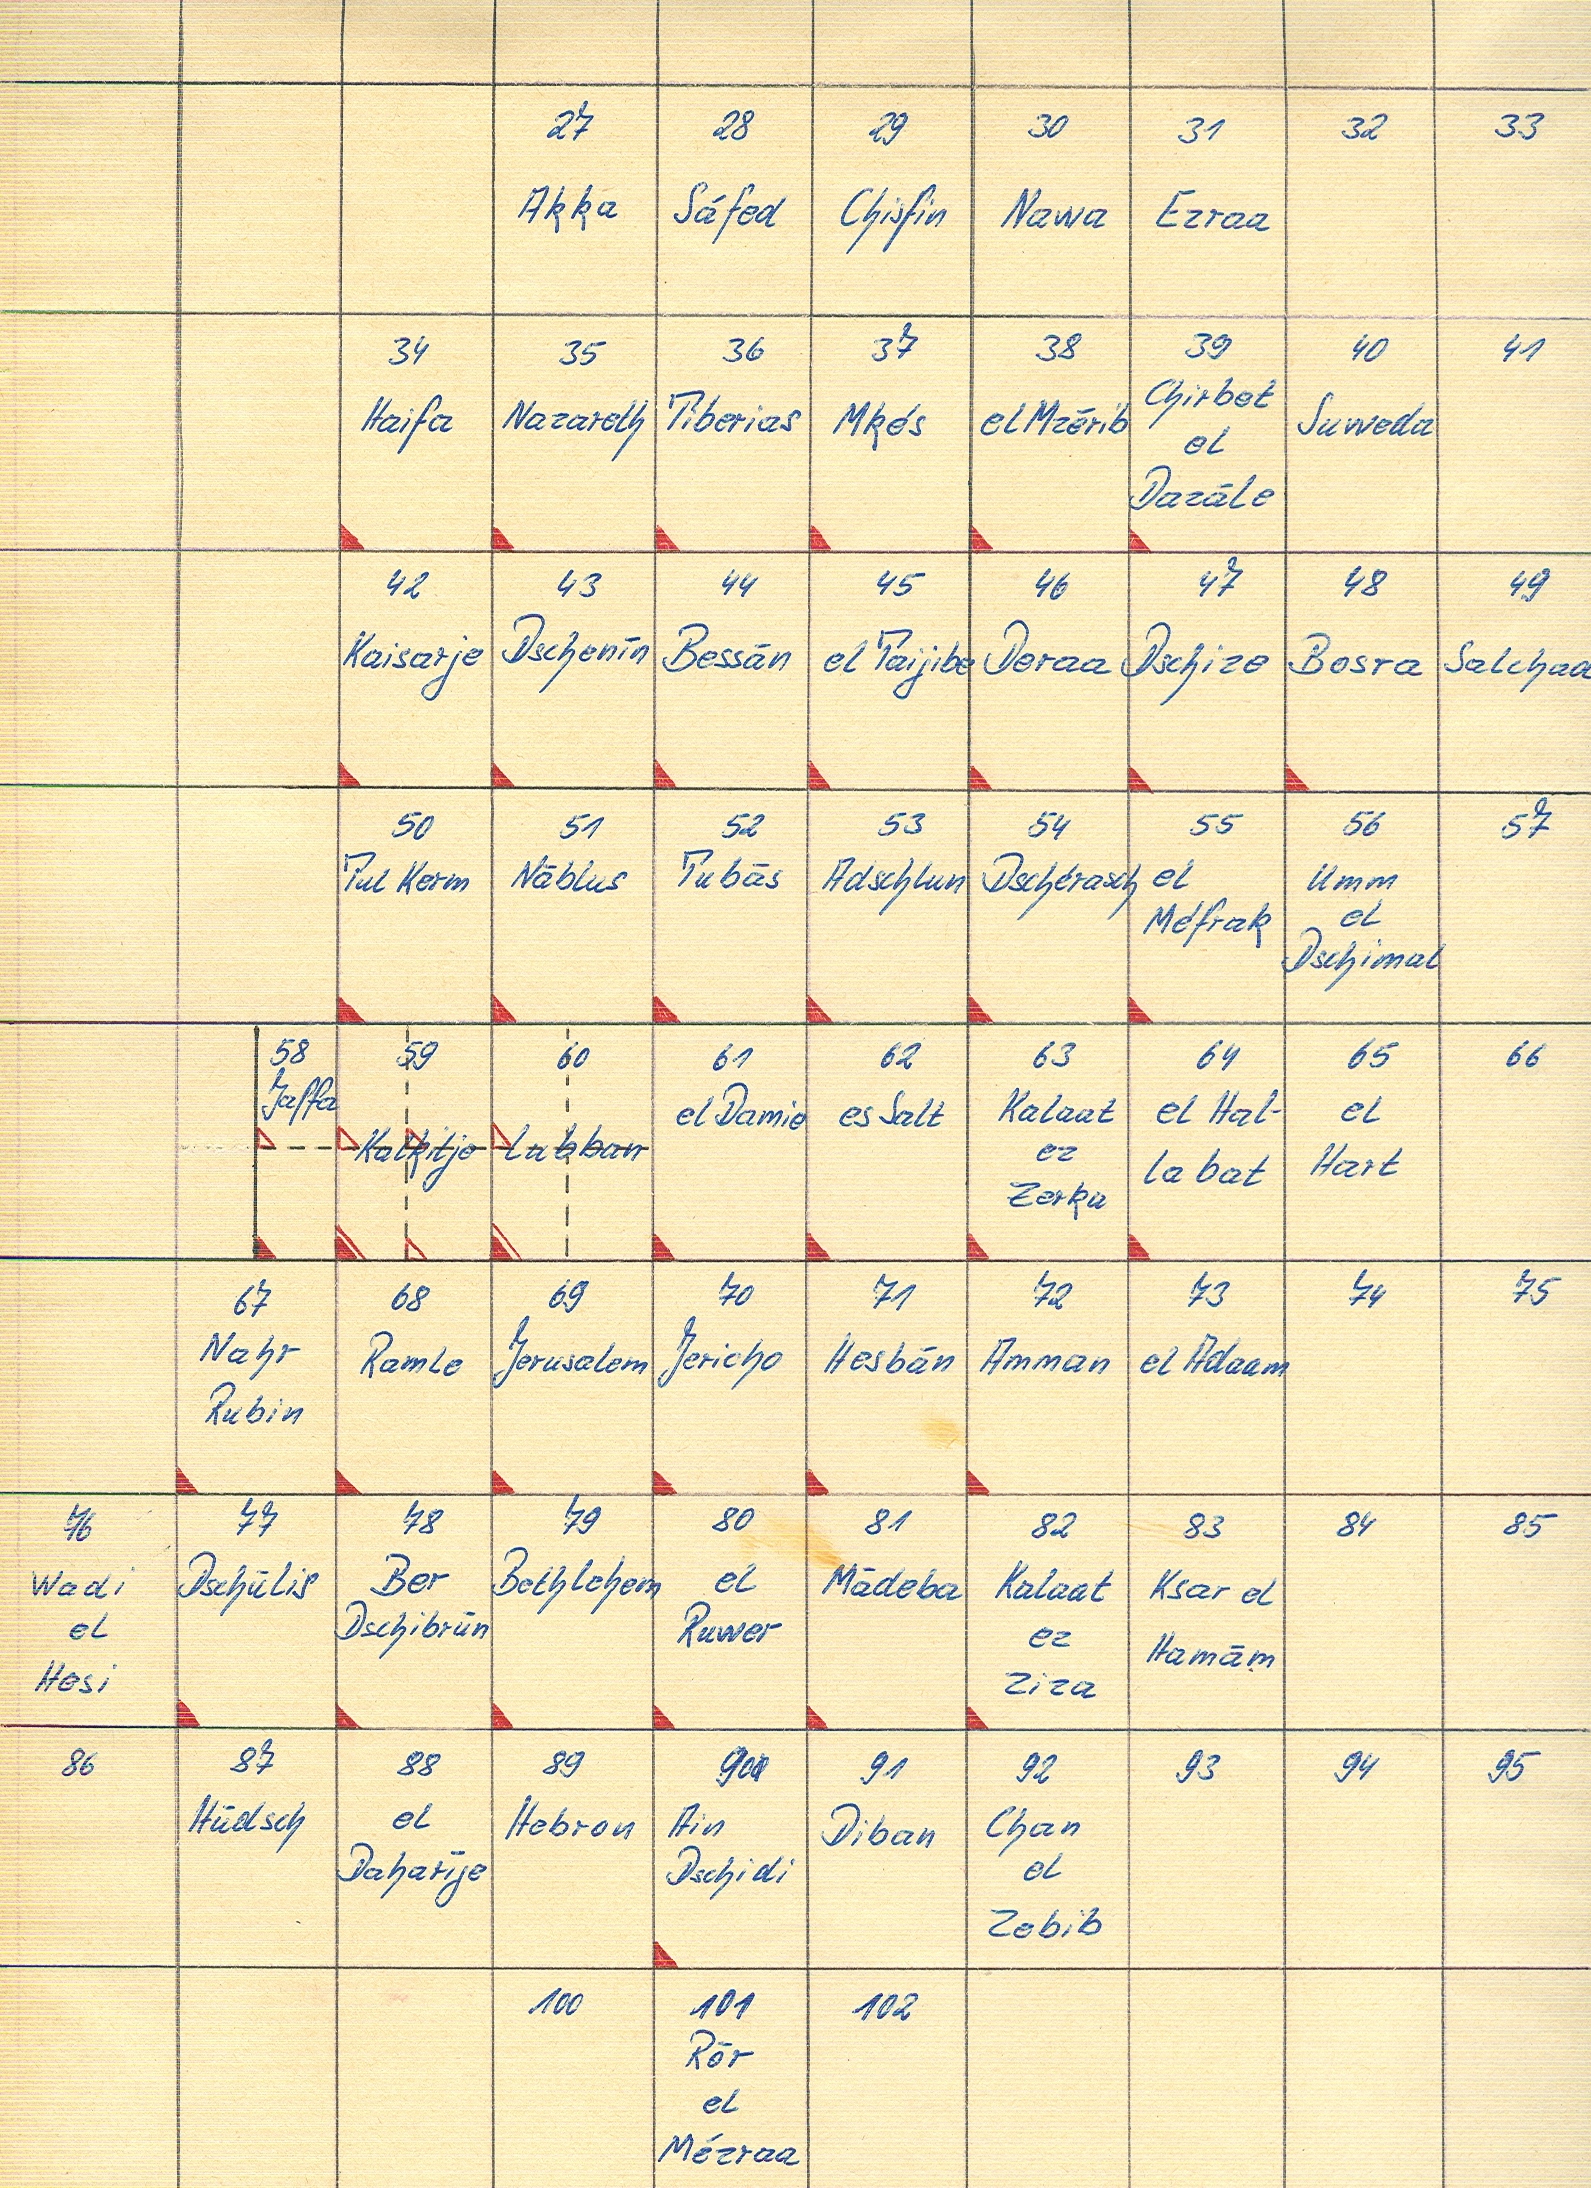 27 28 29 30 31 32 33
Akka Sáfed Chisfin Nawa Ezraa
34 35 36 37 38 39 40 41
Haifa Nazareth Tiberias Mkés el Mzērib Chirbet el Dazāle Suweda
42 43 44 45 46 47 48 49
Kaisarje Dschenīn Bessān el Taijibe Deraa Dschize Bosra Salchad
50 51 52 53 54 55 56 57
Tul Kerm Nāblus Tubās Adschlun Dschérasch el Méfrak Umm el Dschimal
58 59 60 61 62 63 64 65 66
Jaffa Kalkilje Lubban el Damie es Salt Kalaat ez Zerka el Hal-
labat el Hart
67 68 69 70 71 72 73 74 75
Nahr Rubin Ramle Jerusalem Jericho Hesbān Amman el Adaam
76 77 78 79 80 81 82 83 84 85
Wadi el Hesi Dschūlis Ber Dschibrūn Bethlehem el Ruwer Mādeba Kalaat ez Ziza Ksar el Hamām
86 87 88 89 90 91 92 93 94 95
Hūdsch el Daharīje Hebron Ain Dschidi Diban Chan el Zebib
100 101 102
Rōr el Mézraa